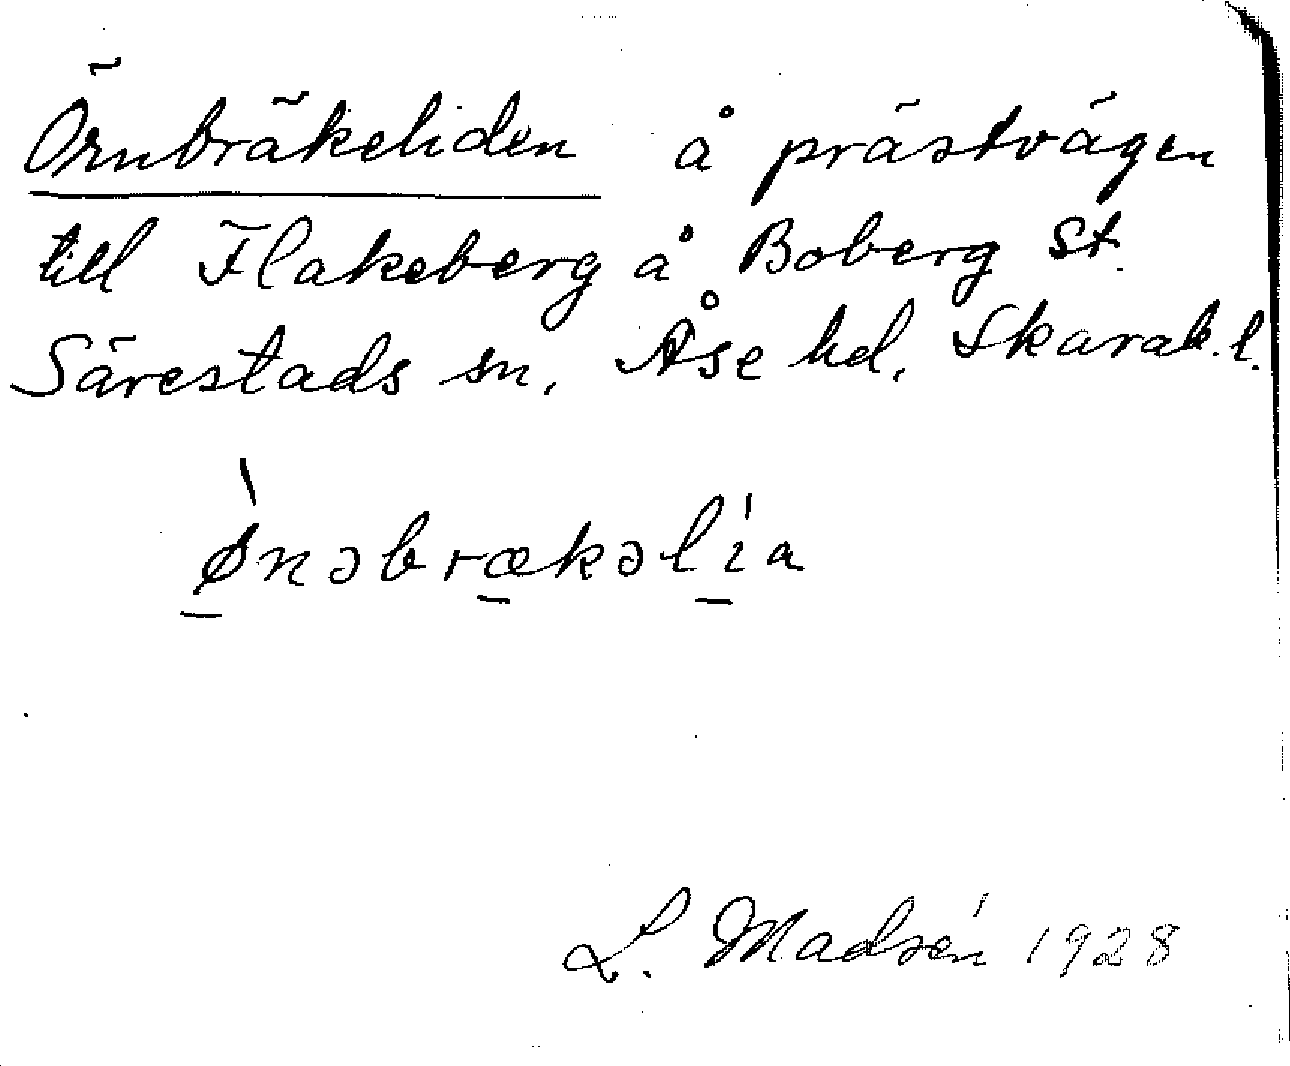 Örnbräkeliden å prästvägen
till Flakeberg å Boberg St.
Särestads sn. Åse hd. Skarab. l.
ø̀nəbrækəlı́a
L. Madsén 1928